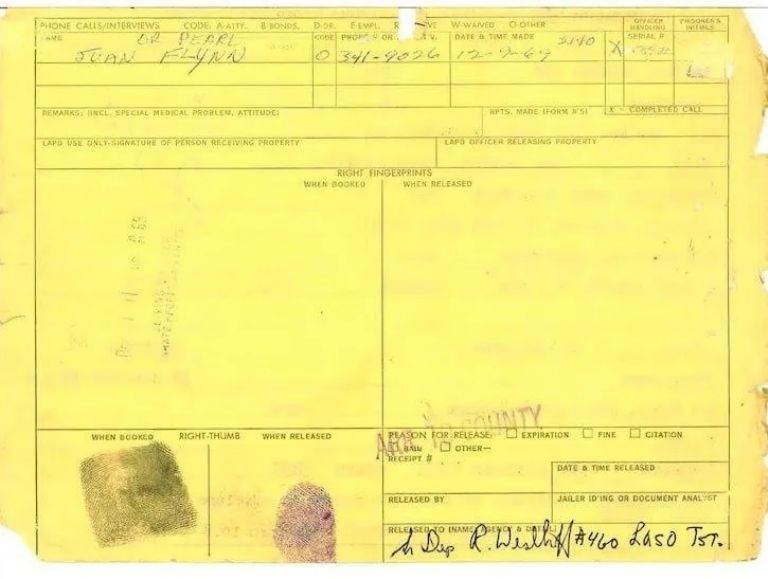 PHONE CALLS/INTERVIEWS CODE: A-ATTY. B-BONDS. D-DR. E-EMPL. W-WAIVED O-OTHER
OFFICER HANDLING SERIAL # PRISONER'S INITIALS
NAME CODE PHONE # OR DATE & TIME MADE
OR PEARL
JUAN FLYNN O 341-9026 12-9-69 X
REMARKS: (INCL. SPECIAL MEDICAL PROBLEM, ATTITUDE) RPTS. MADE (FORM #'S) X - COMPLETED CALL
LAPD USE ONLY-SIGNATURE OF PERSON RECEIVING PROPERTY LAPD OFFICER RELEASING PROPERTY
RIGHT FINGERPRINTS
WHEN BOOKED WHEN RELEASED
COUNTY
WHEN BOOKED RIGHT-THUMB WHEN RELEASED
REASON FOR RELEASE: EXPIRATION FINE CITATION
BAIL OTHER—
RECEIPT #
DATE & TIME RELEASED
RELEASED BY JAILER ID'ING OR DOCUMENT ANALYST
RELEASED TO (NAME, AGENCY & DATE)
Dep R. #460 LASO